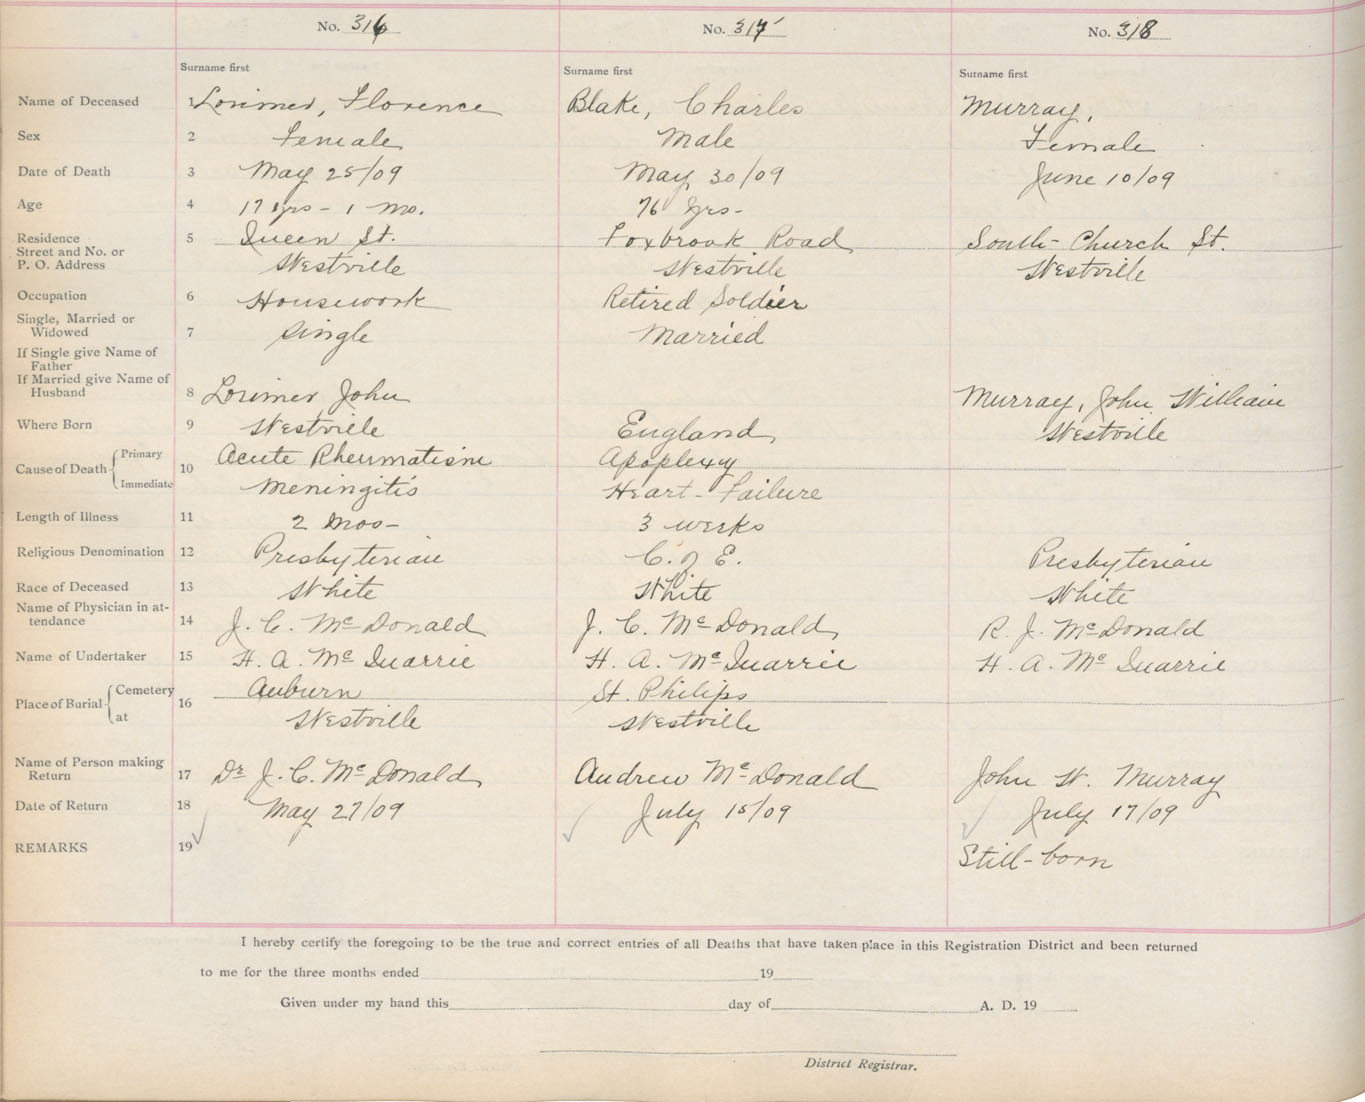 No. 316 No. 317 No. 318
Surname first Surname first Surname first
Name of Deceased 1 Lorimer, Florence Blake, Charles Murray,
Sex 2 Female Male Female
Date of Death 3 May 25/09 May 30/09 June 10/09
Age 4 17 yrs - 1 mo. 76 yrs-
Residence 5 Queen St. Foxbrook Road South-Church St.
Street and No. or
P. O. Address Westville Westville Westville
Occupation 6 Housework Retired Soldier
Single, Married or
Widowed 7 Single Married
If Single give Name of
Father
If Married give Name of
Husband 8 Lorimer John Murray, John William
Where Born 9 Westville England Westville
Cause of Death 10 Primary Acute Rheumatism Apoplexy
Immediate Meningitis Heart-Failure
Length of Illness 11 2 mos- 3 weeks
Religious Denomination 12 Presbyterian C. of E. Presbyterian
Race of Deceased 13 White White White
Name of Physician in at-
tendance 14 J. C. McDonald J. C. McDonald R. J. McDonald
Name of Undertaker 15 H. A. McQuarrie H. A. McQuarrie H. A. McQuarrie
Place of Burial 16 Cemetery Auburn St. Philips
at Westville Westville
Name of Person making
Return 17 Dr J. C. McDonald Andrew McDonald John W. Murray
Date of Return 18 May 27/09 July 15/09 July 17/09
REMARKS 19 Still-born
I hereby certify the foregoing to be the true and correct entries of all Deaths that have taken place in this Registration District and been returned
to me for the three months ended 19
Given under my hand this day of A. D. 19
District Registrar.